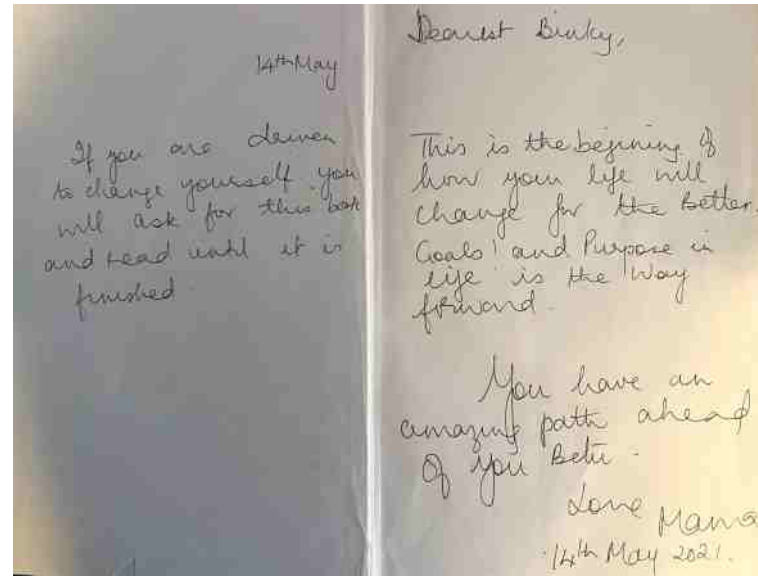 14th May
If you are driven
to change yourself you
will ask for this book
and read until it is
finished.
Dearest Binky,
This is the begining of
how your life will
change for the Better.
Goals! and Purpose in
life is the Way
forward.
You have an
amazing path ahead
of you Betu.
Love Mama
14th May 2021.